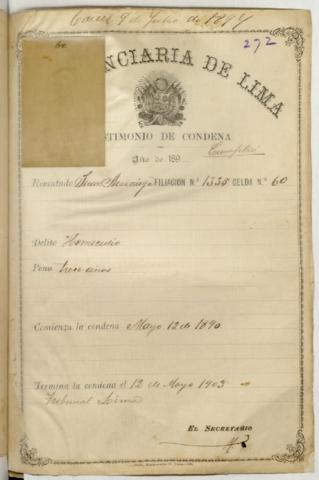 Carcel 9 de Julio de 1894
272
60
NCIARIA DE LIMA
STIMONIO DE CONDENA
Año de 189
Cumplió
Rematado Juan FILIACION N.° 1335 CELDA N.° 60
Delito Homicidio
Pena trece años
Comienza la condena Mayo 12 de 1890
Termina la condena el 12 de Mayo 1903
Tribunal Lima
EL SECRETARIO